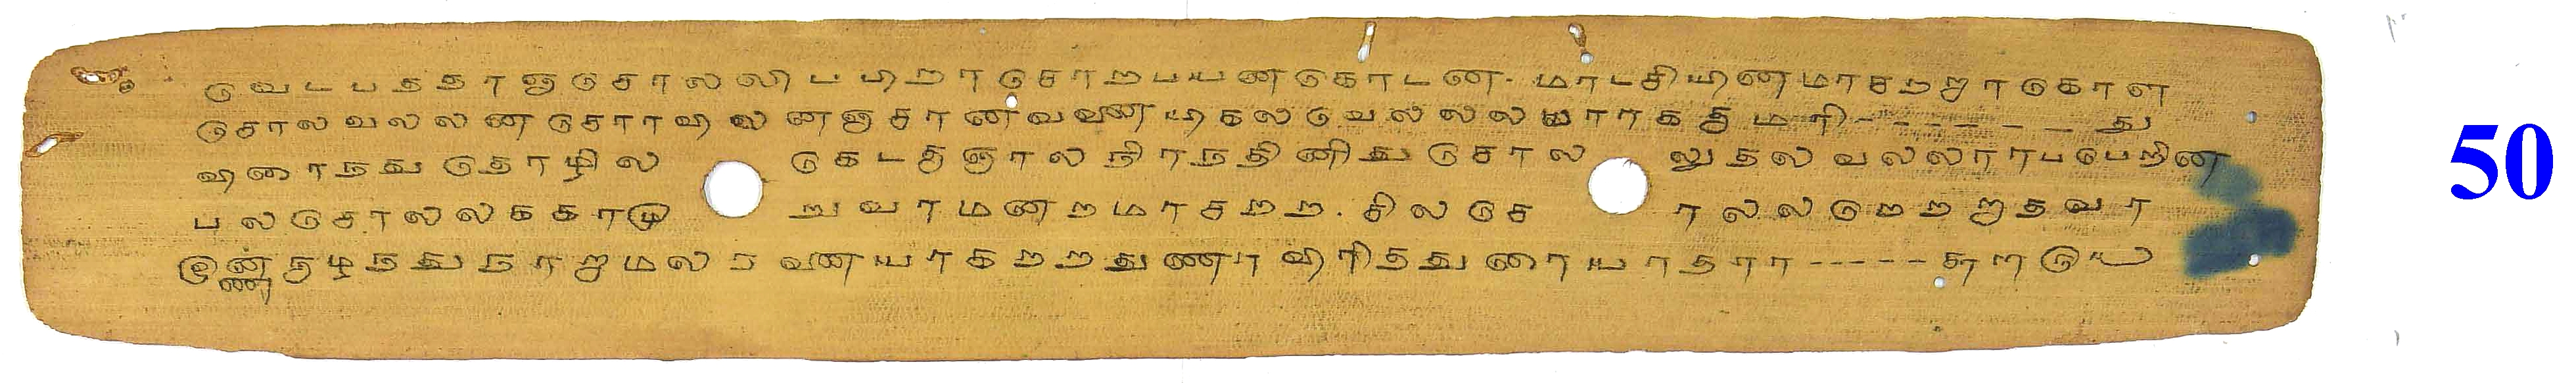 வெடபததாஞசொலலிபபிறரசொறபயனகொடன. மாடசியினமாசறறாரகொள
சொலலவலலனசொரவிலனஞசானவனையிகலவெலலலயாரககுமரி- - - - - - - து
விரைநதுதொழில கெடகுஞாலநிரநதினிதுசொல லுதலவலலாரபபெறின
பலசொலலககாமு றுவரமனறமாசறற. சிலசொ லலலதெறறாதவர
இணருழநதுநாறாமலரனையரகறறதுணரவிரிததுரையாதார - - - - - ௬௱௫௰
50